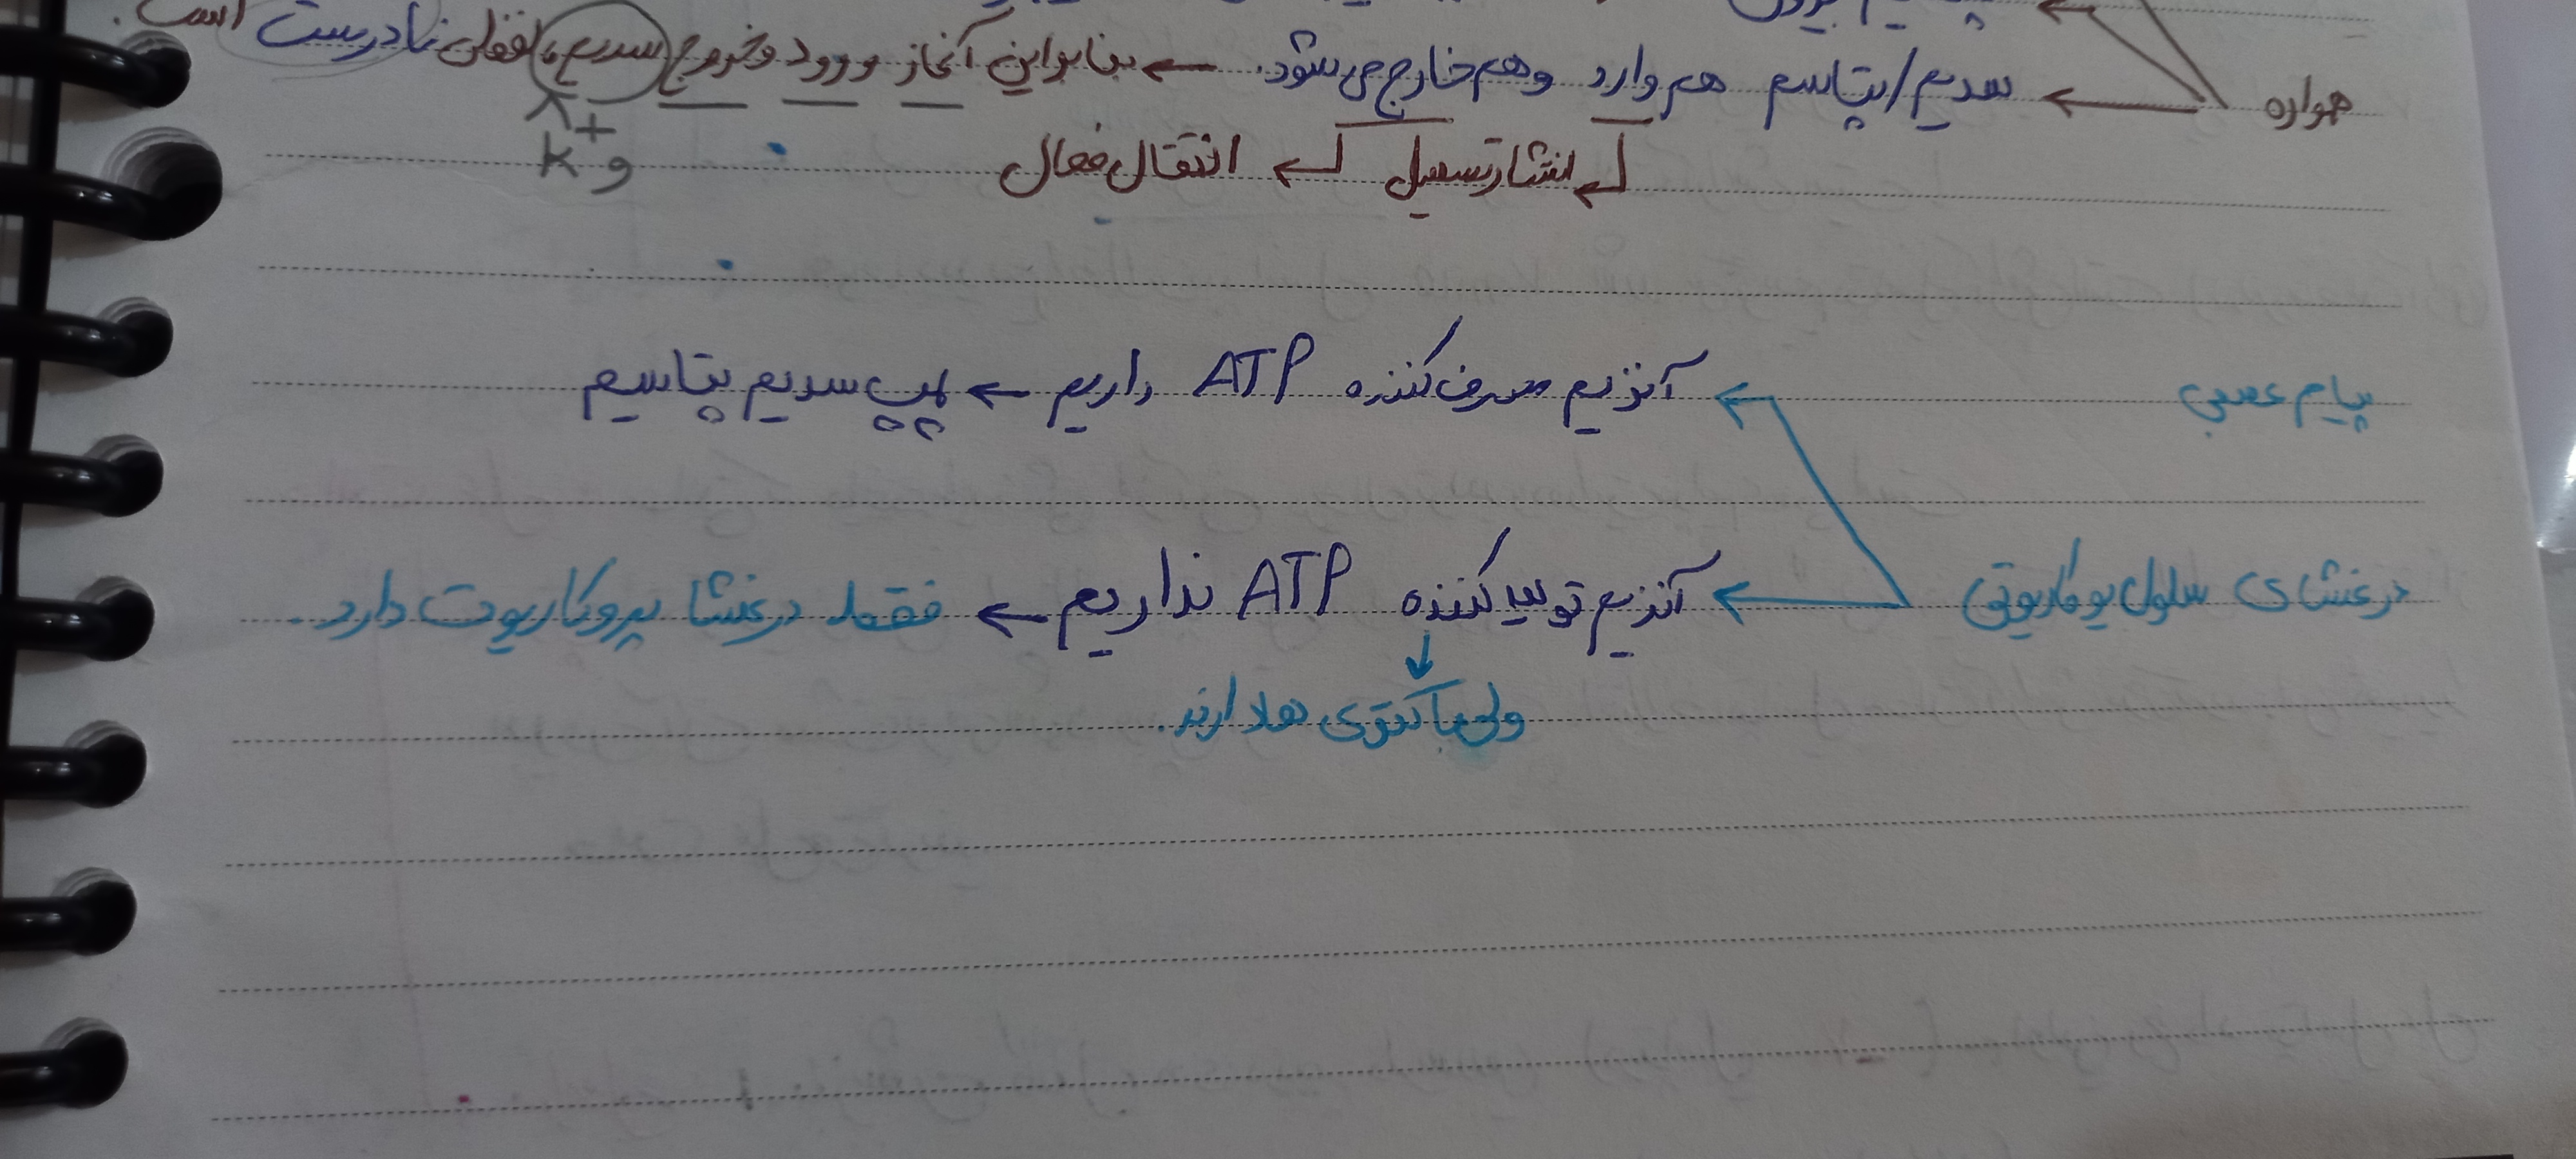 همواره
سدیم/پتاسیم هم وارد و هم خارج می‌شود. ← بنابراین آغاز ورود و خروج سدیم، لفظی نادرست است.
و K+
انتشار تسهیل ← انتقال فعال
پیام عصبی
آنزیم مصرف کننده ATP داریم ← پمپ سدیم پتاسیم
در غشای سلول یوکاریوتی
آنزیم تولید کننده ATP نداریم ← فقط در غشا پروکاریوت دارد.
ولی باکتری ها دارند.